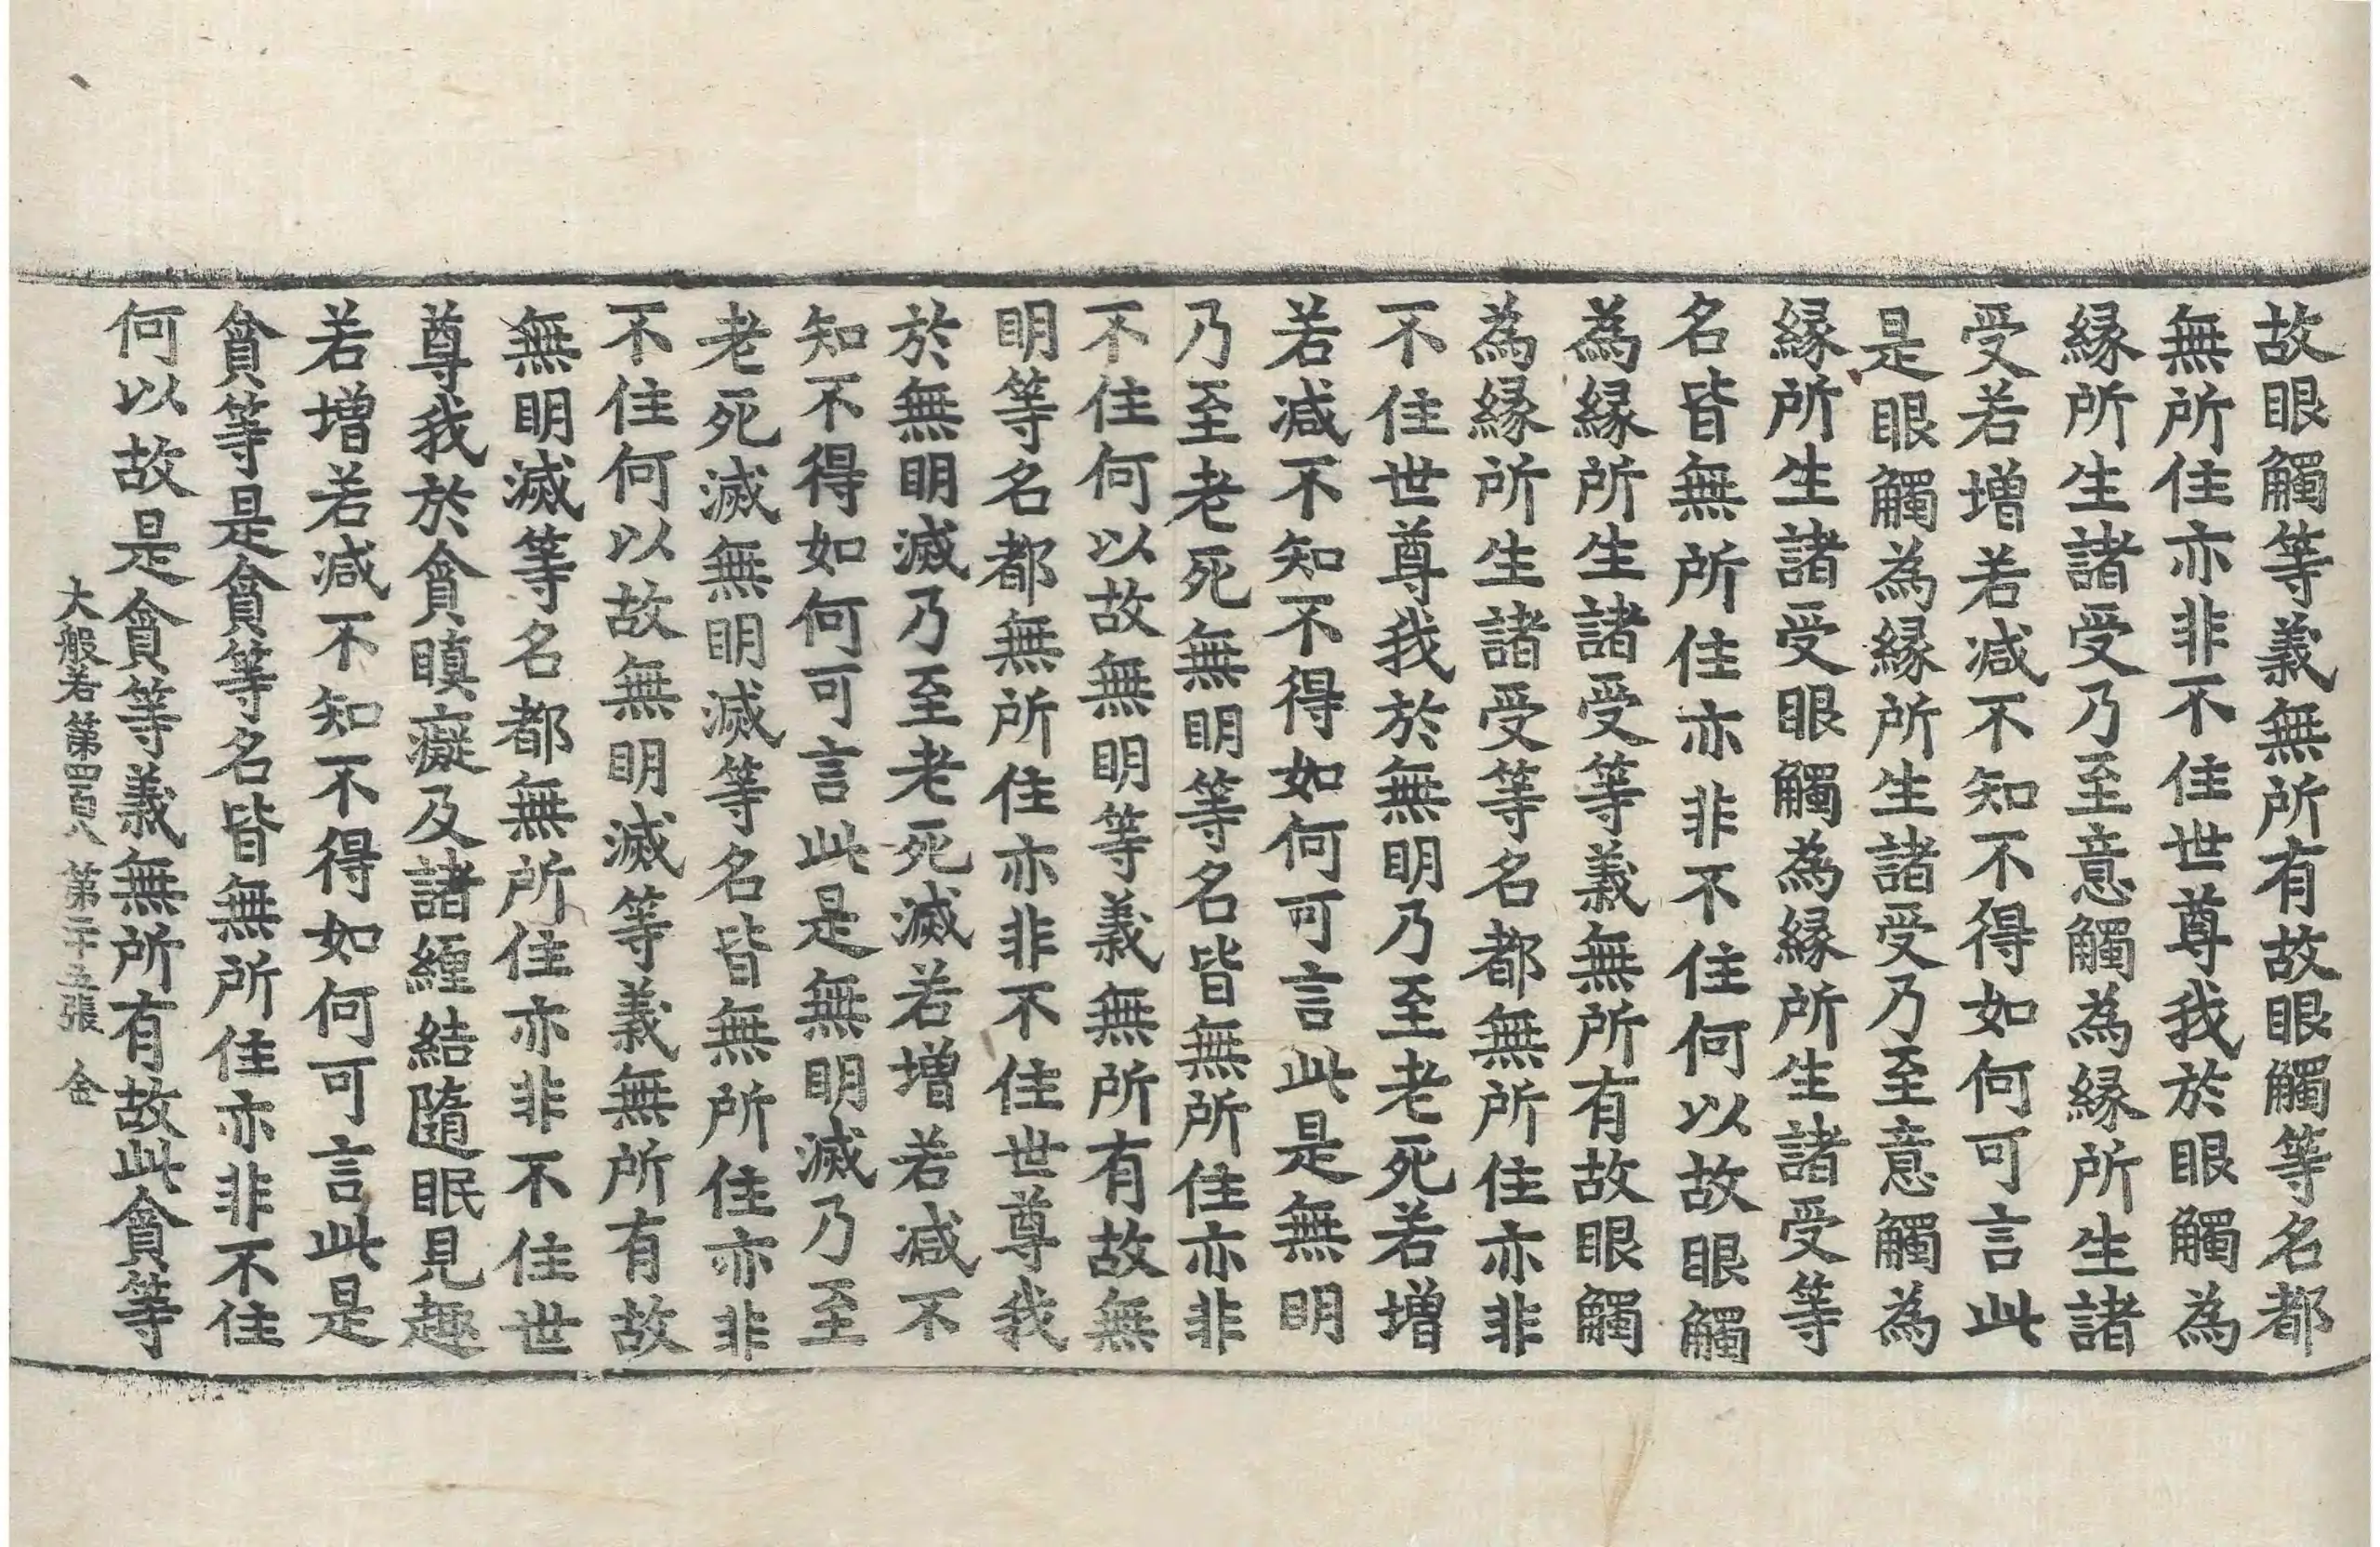 故眼觸等義無所有故眼觸等名都
無所住亦非不住世尊我於眼觸為
緣所生諸受乃至意觸為緣所生諸
受若增若減不知不得如何可言此
是眼觸為緣所生諸受乃至意觸為
緣所生諸受眼觸為緣所生諸受等
名皆無所住亦非不住何以故眼觸
為緣所生諸受等義無所有故眼觸
為緣所生諸受等名都無所住亦非
不住世尊我於無明乃至老死若增
若減不知不得如何可言此是無明
乃至老死無明等名皆無所住亦非
不住何以故無明等義無所有故無
明等名都無所住亦非不住世尊我
於無明滅乃至老死滅若增若減不
知不得如何可言此是無明滅乃至
老死滅無明滅等名皆無所住亦非
不住何以故無明滅等義無所有故
無明滅等名都無所住亦非不住世
尊我於貪瞋癡及諸纏結隨眠見趣
若增若減不知不得如何可言此是
貪等是貪等名皆無所住亦非不住
何以故是貪等義無所有故此貪等
大般若第四百八 第二十五張 金